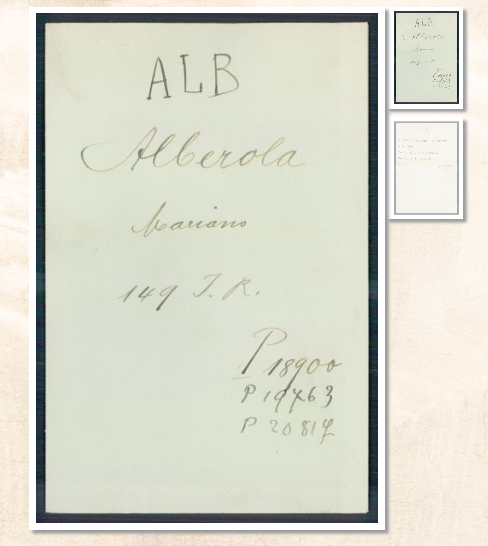 ALB
Alberola
Mariano
149 I. R.
P 18900
P 19763
P 20817